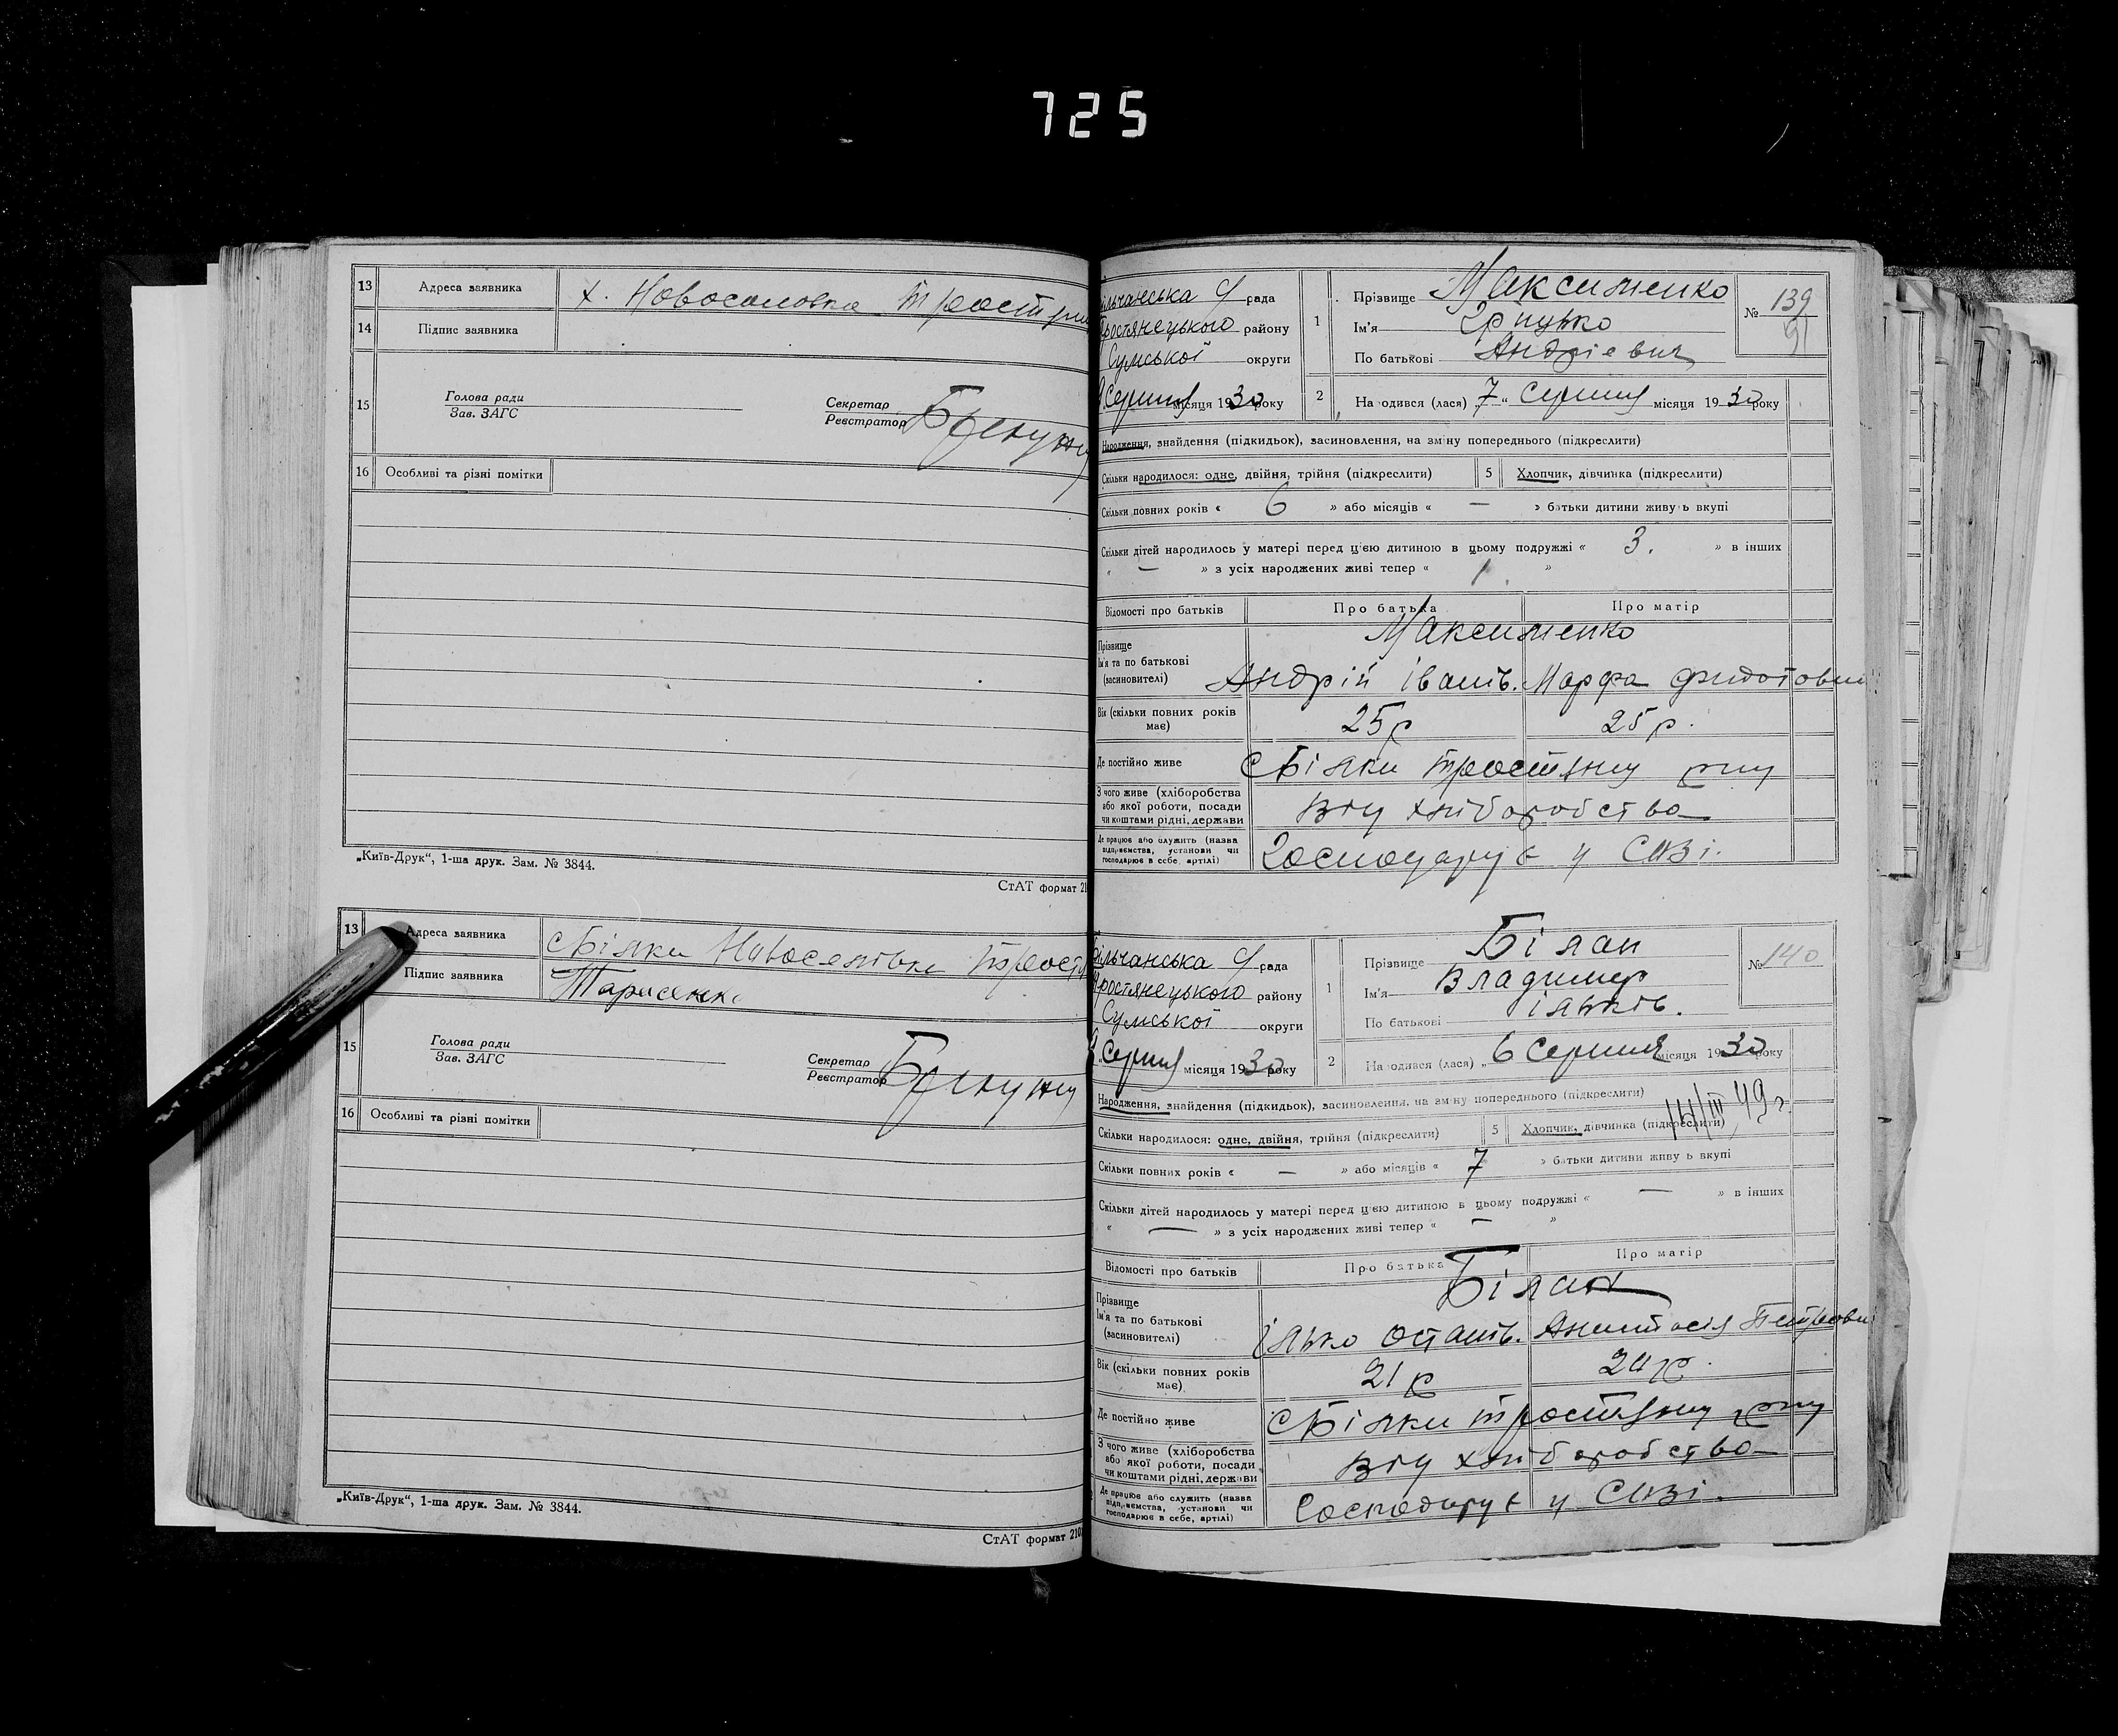 725
13 Адреса заявника х. Новоселовка Тростян
14 Підпис заявника
15 Голова ради
Зав. ЗАГС
Секретар
Реєстратор
16 Особливі та різні помітки
„Київ-Друк“, 1-ша друк. Зам. № 3844.
СтАТ формат 21
13 Адреса заявника с Білки Новоселівка Трост
Підпис заявника Тарасенко
15 Голова ради
Зав. ЗАГС
Секретар
Реєстратор
16 Особливі та різні помітки
„Київ-Друк“, 1-ша друк. Зам. № 3844.
СтАТ формат 210
ільчанська рада
Тростянецького району
Сумської округи
Серпня місяця 1930 року
1 Прізвище Максименко
Ім'я Грицько
По батькові Андрієвич
№ 139
2 На одився (лася) „7“ Серпня місяця 1930 року
Народження, знайдення (підкидьок), засиновлення, на зміну попереднього (підкреслити)
Скільки народилося: одне, двійня, трійня (підкреслити) 5 Хлопчик, дівчинка (підкреслити)
Скільки повних років « 6 » або місяців « — » батьки дитини живу ь вкупі
Скільки дітей народилось у матері перед цією дитиною в цьому подружжі « 3. » в інших
« — » з усіх народжених живі тепер « 1. »
Відомості про батьків Про батька Про матір
Прізвище Максименко
Ім'я та по батькові
(засиновителі) Андрій Іванів. Марфа
Вік (скільки повних років має) 25 р 25 р.
Де постійно живе с Білки Тростян
З чого живе (хліборобства
або якої роботи, посади
чи коштами рідні, держави від хліборобства
Де працює або служить (назва
підприємства, установи чи
господарює в себе, артілі) Господарує у СОЗі.
Більчанська рада
Тростянецького району
Сумської округи
Серпня місяця 1930 року
1 Прізвище Білан
Ім'я Владимир
По батькові Ільків.
№ 140
2 На одився (лася) „6 Серпня місяця 1930 року
Народження, знайдення (підкидьок), засиновлення, на зміну попереднього (підкреслити)
14/III 49 г.
Скільки народилося: одне, двійня, трійня (підкреслити) 5 Хлопчик, дівчинка (підкреслити)
Скільки повних років « — » або місяців « 7 » батьки дитини живу ь вкупі
Скільки дітей народилось у матері перед цією дитиною в цьому подружжі « — » в інших
« — » з усіх народжених живі тепер « — »
Відомості про батьків Про батька Про матір
Прізвище Білан
Ім'я та по батькові
(засиновителі) Ілько Остапів. Анастасія Петровн
Вік (скільки повних років має) 21 р
Де постійно живе с Білки Тростян
З чого живе (хліборобства
або якої роботи, посади
чи коштами рідні, держави від хліборобства
Де працює або служить (назва
підприємства, установи чи
господарює в себе, артілі) Господарує у СОЗі.